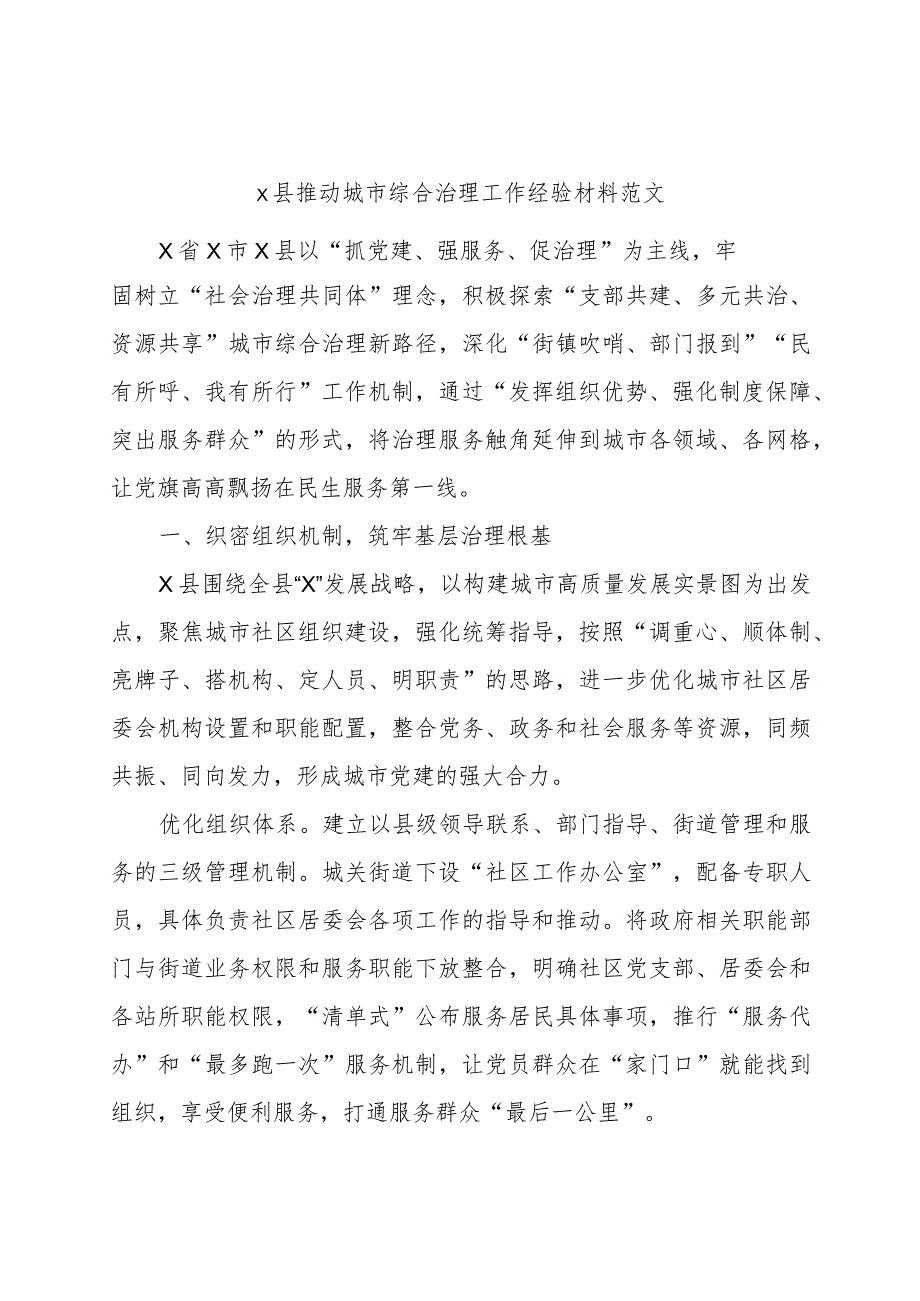 x县推动城市综合治理工作经验材料范文
X省X市X县以“抓党建、强服务、促治理”为主线，牢
固树立“社会治理共同体”理念，积极探索“支部共建、多元共治、
资源共享”城市综合治理新路径，深化“街镇吹哨、部门报到”“民
有所呼、我有所行”工作机制，通过“发挥组织优势、强化制度保障、
突出服务群众”的形式，将治理服务触角延伸到城市各领域、各网格，
让党旗高高飘扬在民生服务第一线。
一、织密组织机制，筑牢基层治理根基
X县围绕全县“X”发展战略，以构建城市高质量发展实景图为出发
点，聚焦城市社区组织建设，强化统筹指导，按照“调重心、顺体制、
亮牌子、搭机构、定人员、明职责”的思路，进一步优化城市社区居
委会机构设置和职能配置，整合党务、政务和社会服务等资源，同频
共振、同向发力，形成城市党建的强大合力。
优化组织体系。建立以县级领导联系、部门指导、街道管理和服
务的三级管理机制。城关街道下设“社区工作办公室”，配备专职人
员，具体负责社区居委会各项工作的指导和推动。将政府相关职能部
门与街道业务权限和服务职能下放整合，明确社区党支部、居委会和
各站所职能权限，“清单式”公布服务居民具体事项，推行“服务代
办”和“最多跑一次”服务机制，让党员群众在“家门口”就能找到
组织，享受便利服务，打通服务群众“最后一公里”。